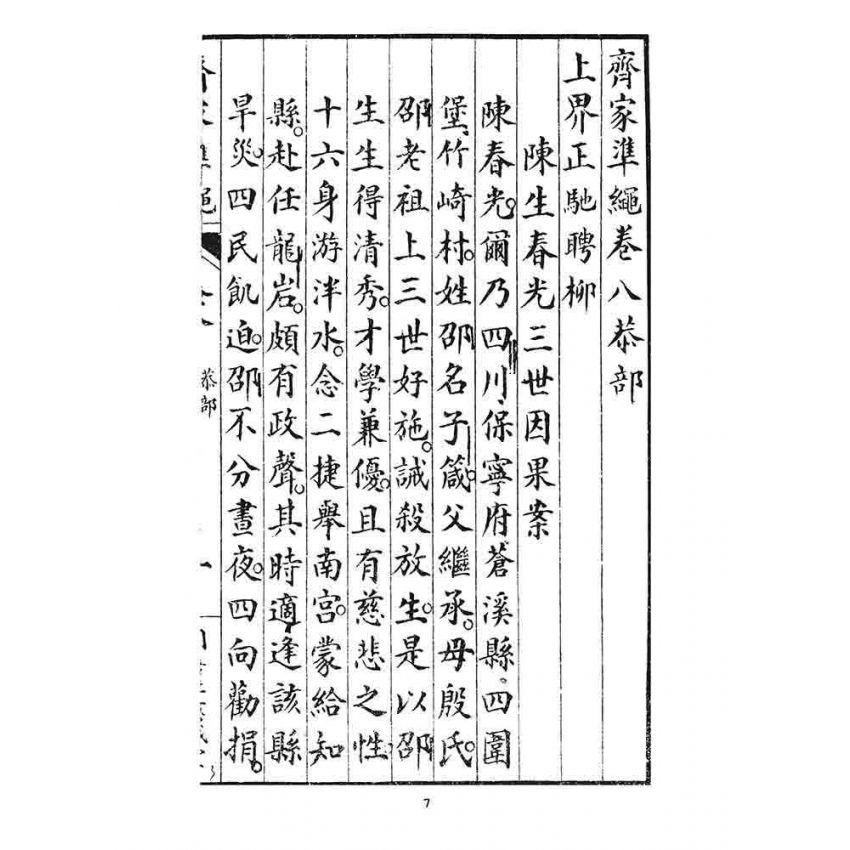 齊家準繩卷八恭部
上界正馳聘柳
陳生春光三世因果案
陳春光。爾乃四川、保寧府蒼溪縣、四圍
堡、竹崎村。姓邵名子箴。父繼承。母殷氏。
邵老祖上三世好施。誡殺放生。是以邵
生生得清秀。才學兼優。且有慈悲之性。
十六身游泮水。念二捷舉南宮。蒙給知
縣。赴任龍岩。頗有政聲。其時適逢該縣
旱災。四民飢迫。邵不分晝夜。四向勸捐。
齊家準繩
恭部
一
7